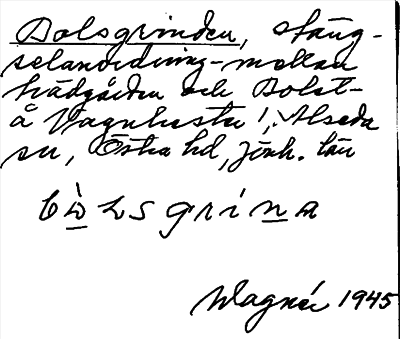 Bolsgrinden, stäng-
selanordning mellan
trädgården och Bolst-
å Vagnhester, Alseda
sn, Östra hd, Jönk. län
bòlsgrína
Wagnér 1945